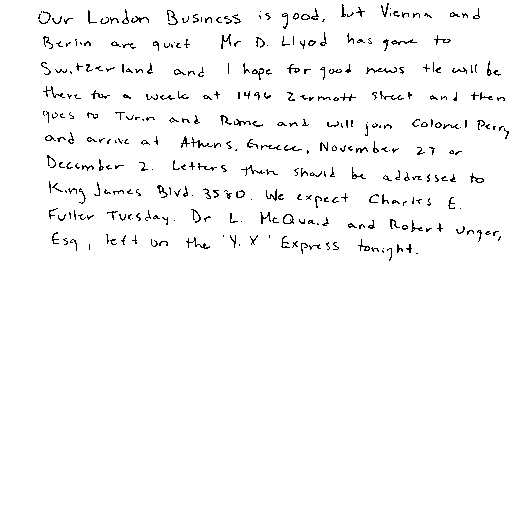 Our London Business is good, but Vienna and
Berlin are quiet Mr D. Llyod has gone to
Switzerland and I hope for good news He will be
there for a week at 1496 Zermott Street and then
goes to Turin and Rome and will join Colonel Perry
and arrive at Athens, Greece, November 27 or
December 2. Letters then should be addressed to
King James Blvd. 3580. We expect Charles E.
Fuller Tuesday. Dr L. McQuaid and Robert Unger,
Esq, left on the 'Y. X' Express tonight.